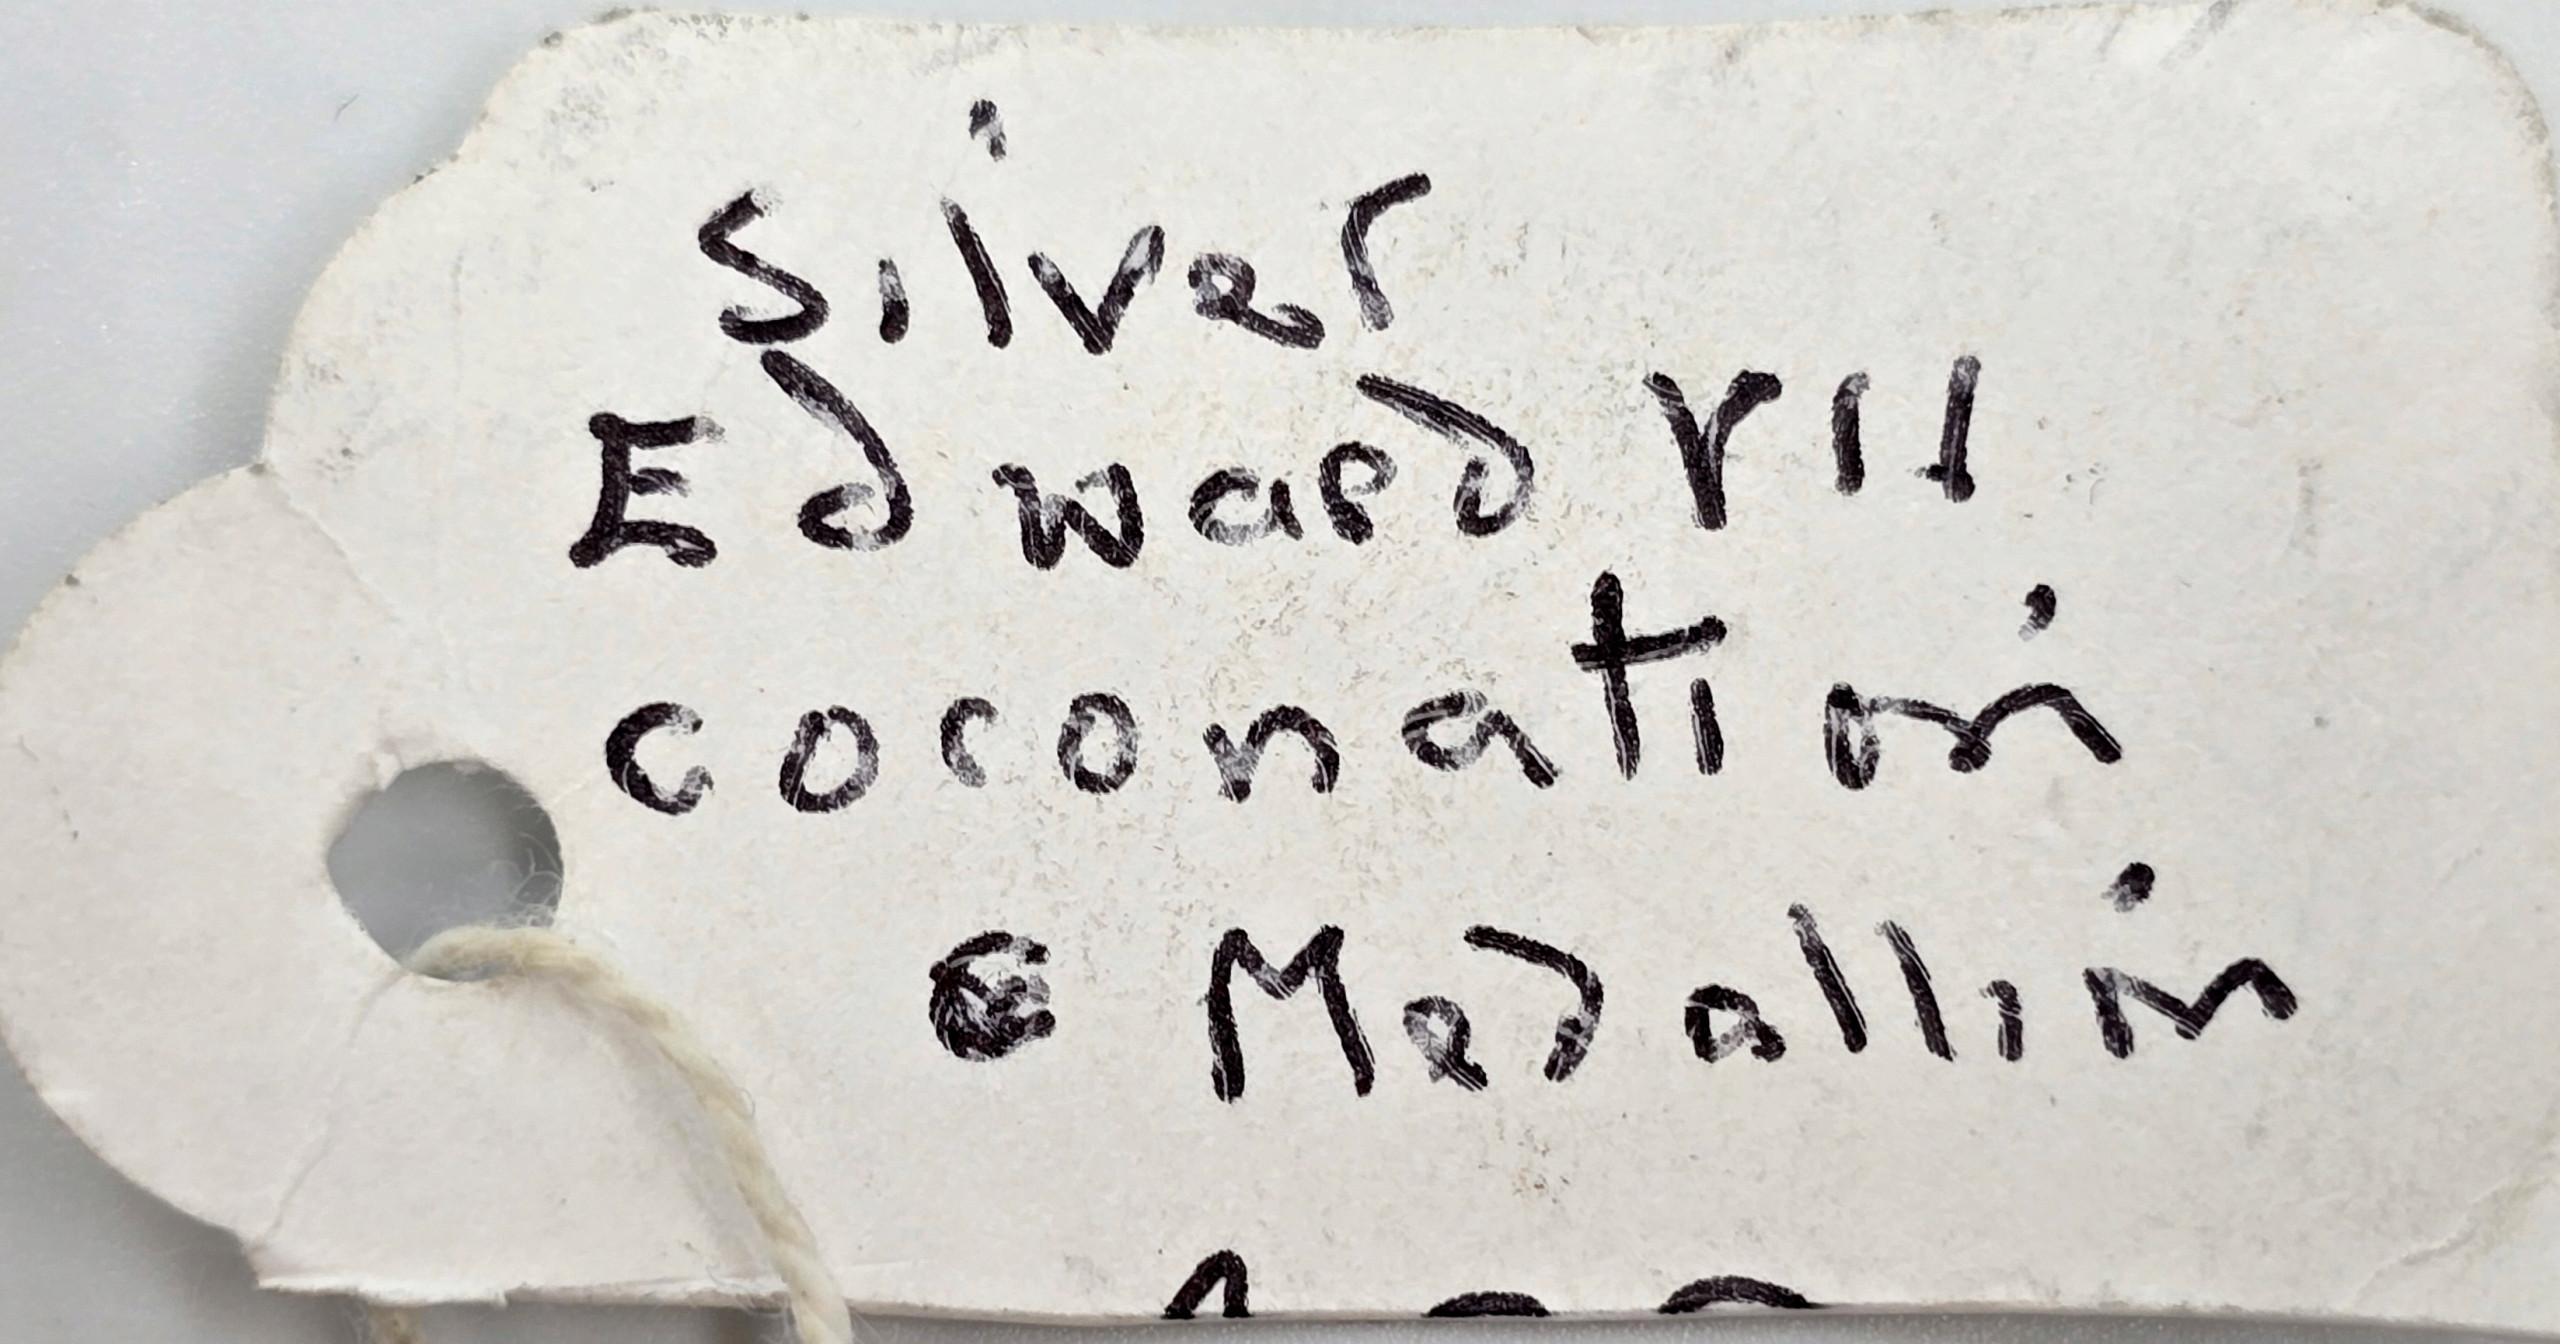 Silver
Edward VII
coronation
Medallin